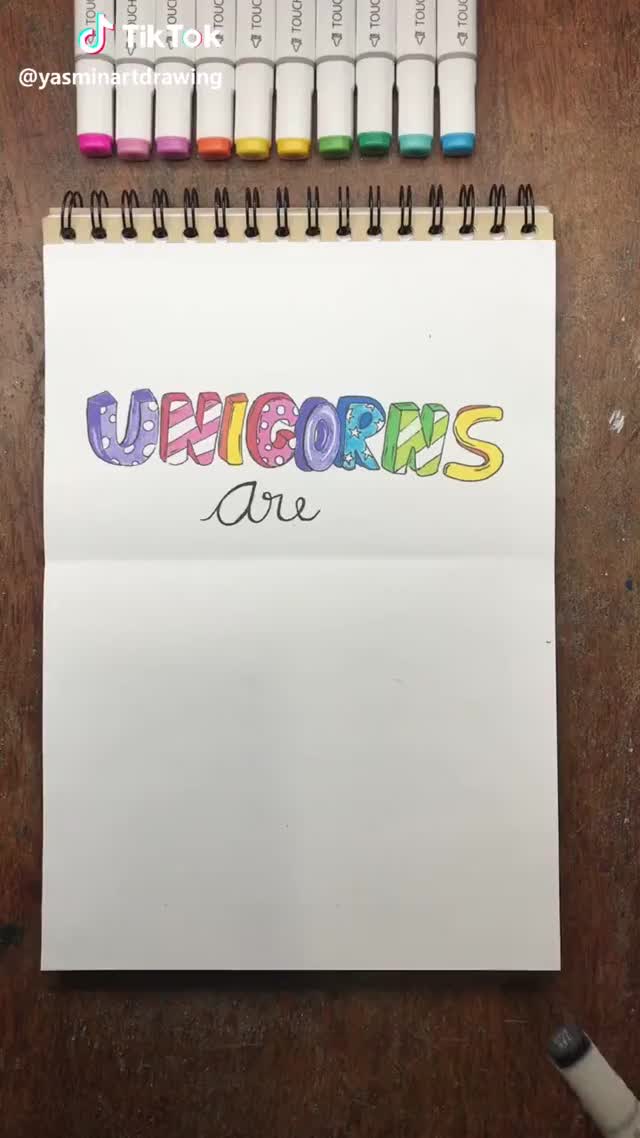 TikTok
@yasminartdrawing
TOUCH
TOUCH
TOUCH
TOUCH
TOUCH
TOUCH
TOUCH
UNICORNS
are